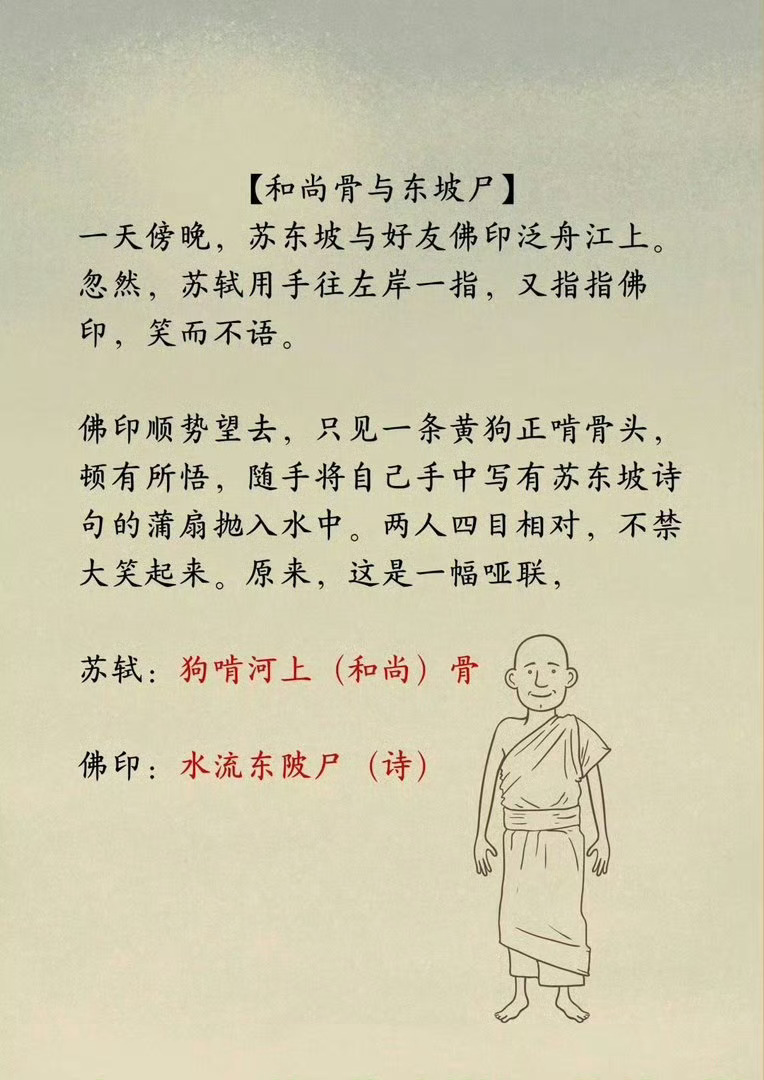 【和尚骨与东坡尸】
一天傍晚，苏东坡与好友佛印泛舟江上。
忽然，苏轼用手往左岸一指，又指指佛
印，笑而不语。
佛印顺势望去，只见一条黄狗正啃骨头，
顿有所悟，随手将自己手中写有苏东坡诗
句的蒲扇抛入水中。两人四目相对，不禁
大笑起来。原来，这是一幅哑联，
苏轼：狗啃河上（和尚）骨
佛印：水流东陂尸（诗）